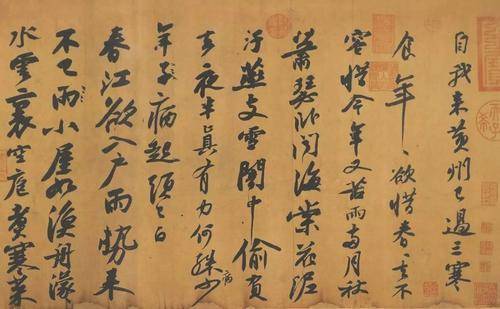 自我来黃州已過三寒
食年〻欲惜春〻去不
容惜今年又苦雨兩月秋
蕭瑟卧聞海棠花泥
汙燕支雪闇中偷負
去夜半真有力何殊少
病
年子病起頭已白
春江欲入户雨勢來
不已雨小屋如漁舟濛〻
水雲裏空庖煮寒菜